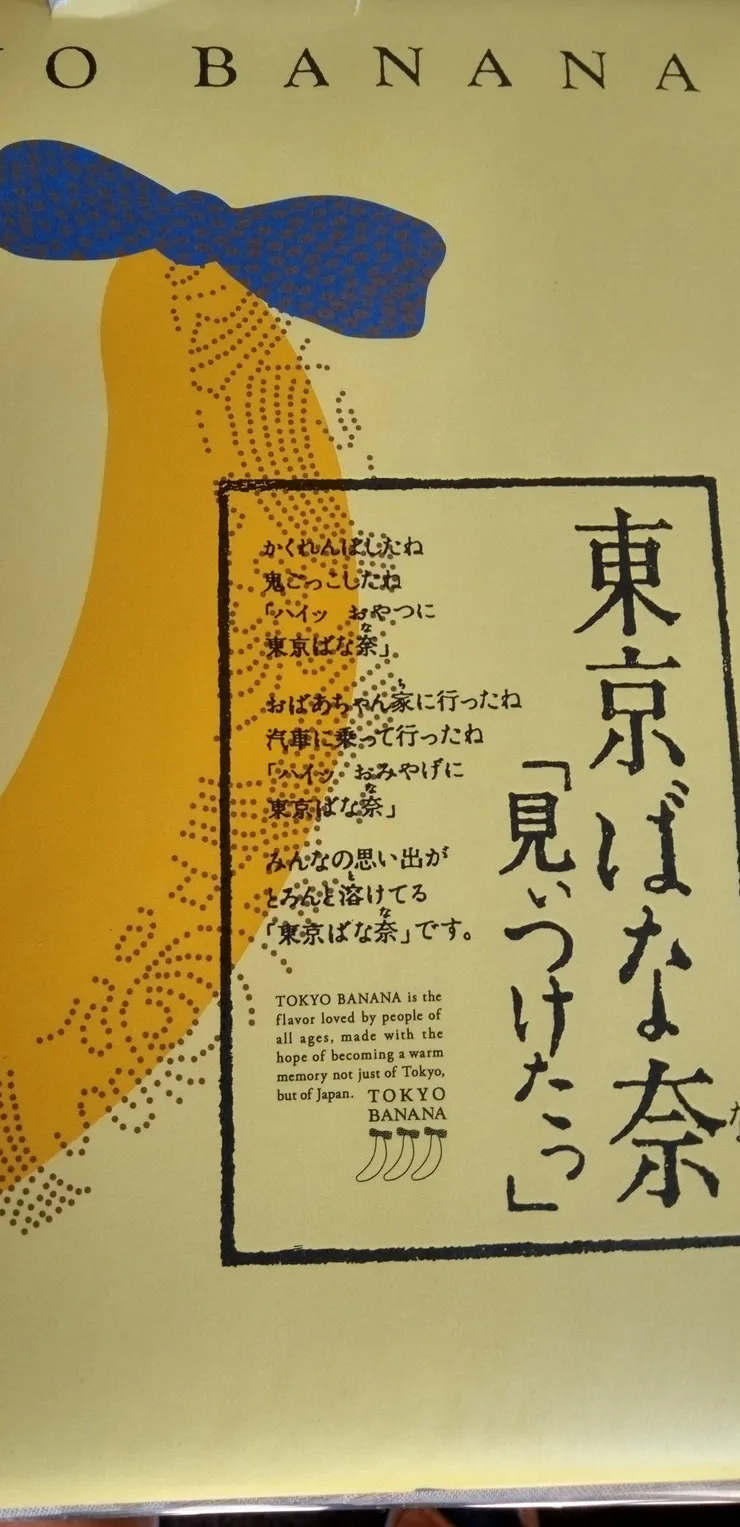 O BANANA
東京ばな奈
「見ぃつけたっ」
かくれんぼしたね
鬼ごっこしたね
「ハイッ おやつに
東京ばな奈」
おばあちゃん家に行ったね
汽車に乗って行ったね
「ハイッ おみやげに
東京ばな奈」
みんなの思い出が
とろんと溶けてる
「東京ばな奈」です。
TOKYO BANANA is the
flavor loved by people of
all ages, made with the
hope of becoming a warm
memory not just of Tokyo,
but of Japan.
TOKYO
BANANA